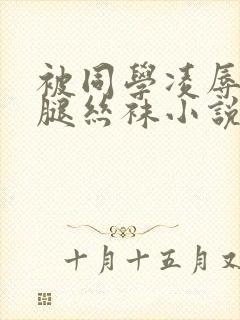 被同學凌辱
腿丝袜小說
十月十五月又